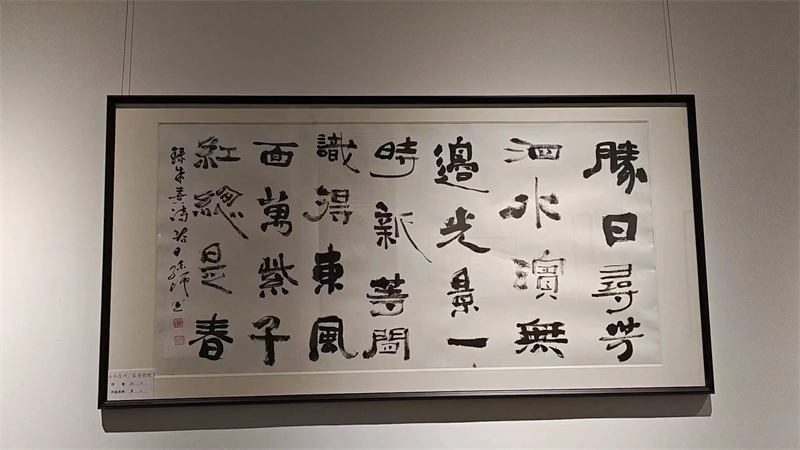 勝日尋芳
泗水濱無
邊光景一
時新等閒
識得東風
面萬紫千
紅總是春
録朱熹詩春日